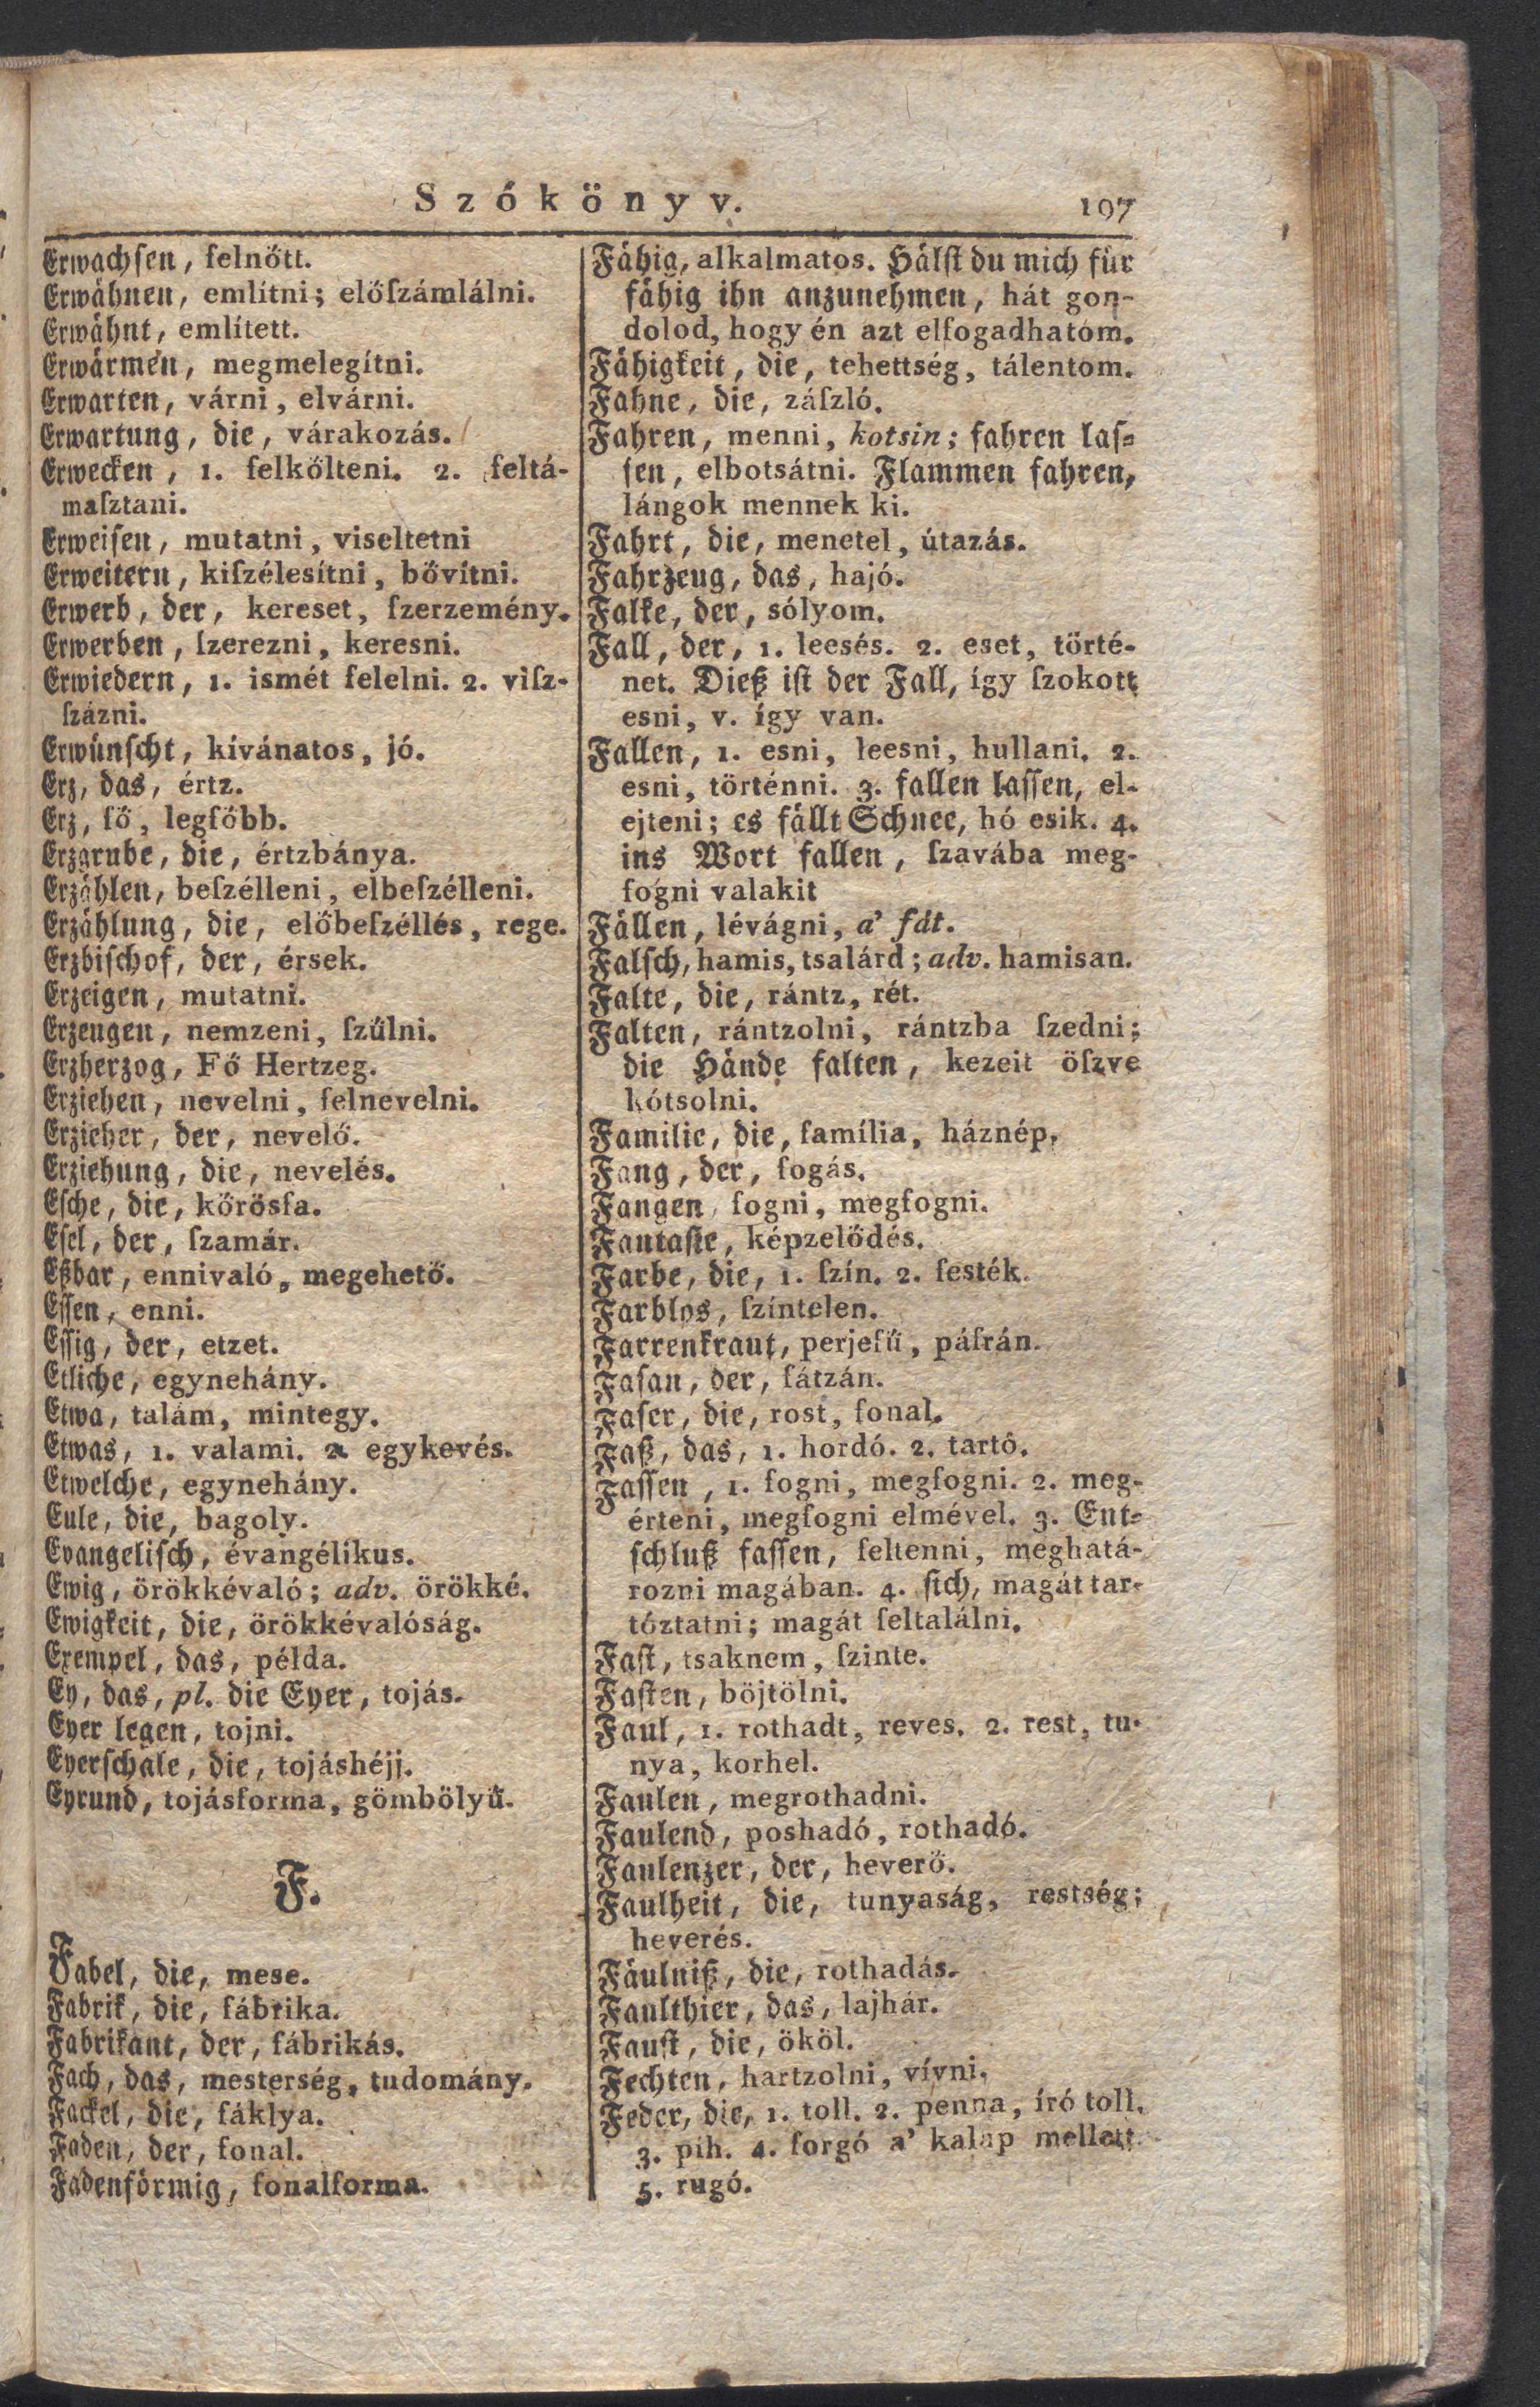 Szókönyv. 197
Erwachsen, felnőtt.
Erwähnen, említni; előſzámlálni.
Erwähnt, említett.
Erwärmen, megmelegítni.
Erwarten, várni, elvárni.
Erwartung, die, várakozás.
Erwecken, 1. felkőlteni. 2. feltá-
maſztani.
Erweiſen, mutatni, viseltetni
Erweitern, kiſzélesítni, bővítni.
Erwerb, der, kereset, ſzerzemény.
Erwerben, ſzerezni, keresni.
Erwiedern, 1. ismét felelni. 2. viſz-
ſzázni.
Erwünſcht, kívánatos, jó.
Erz, das, értz.
Erz, fő, legfőbb.
Erzgrube, die, értzbánya.
Erzählen, beſzélleni, elbeſzélleni.
Erzählung, die, előbeſzéllés, rege.
Erzbiſchof, der, érsek.
Erzeigen, mutatni.
Erzeugen, nemzeni, ſzűlni.
Erzherzog, Fő Hertzeg.
Erziehen, nevelni, felnevelni.
Erzieher, der, nevelő.
Erziehung, die, nevelés.
Eſche, die, kőrösfa.
Eſel, der, ſzamár.
Eßbar, ennivaló, megehető.
Eſſen, enni.
Eſſig, der, etzet.
Etliche, egynehány.
Etwa, talám, mintegy.
Etwas, 1. valami. 2. egykevés.
Etwelche, egynehány.
Eule, die, bagoly.
Evangeliſch, évangélíkus.
Ewig, örökkévaló; adv. örökké.
Ewigkeit, die, örökkévalóság.
Exempel, das, példa.
Ey, das, pl. die Eyer, tojás.
Eyer legen, tojni.
Eyerſchale, die, tojáshéjj.
Eyrund, tojásforma, gömbölyű.
F.
Fabel, die, mese.
Fabrik, die, fábrika.
Fabrikant, der, fábrikás.
Fach, das, mesterség, tudomány.
Fackel, die, fáklya.
Faden, der, fonal.
Fadenförmig, fonalforma.
Fähig, alkalmatos. Hälſt du mich für
fähig ihn anzunehmen, hát gon-
dolod, hogy én azt elfogadhatom.
Fähigkeit, die, tehettség, tálentom.
Fahne, die, záſzló.
Fahren, menni, kotsin; fahren laſ-
ſen, elbotsátni. Flammen fahren,
lángok mennek ki.
Fahrt, die, menetel, útazás.
Fahrzeug, das, hajó.
Falke, der, sólyom.
Fall, der, 1. leesés. 2. eset, törté-
net. Dieß iſt der Fall, így ſzokott
esni, v. így van.
Fallen, 1. esni, leesni, hullani. 2.
esni, történni. 3. fallen laſſen, el-
ejteni; es fällt Schnee, hó esik. 4.
ins Wort fallen, ſzavába meg-
fogni valakit
Fällen, lévágni, a' fát.
Falſch, hamis, tsalárd; adv. hamisan.
Falte, die, rántz, rét.
Falten, rántzolni, rántzba ſzedni;
die Hände falten, kezeit öſzve
kótsolni.
Familie, die, família, háznép.
Fang, der, fogás.
Fangen, fogni, megfogni.
Fantaſie, képzelődés.
Farbe, die, 1. ſzín. 2. festék.
Farblos, ſzíntelen.
Farrenkraut, perjefű, páfrán.
Faſan, der, fátzán.
Faſer, die, rost, fonal.
Faß, das, 1. hordó. 2. tartó.
Faſſen, 1. fogni, megfogni. 2. meg-
érteni, megfogni elmével. 3. Ent-
ſchluß faſſen, feltenni, meghatá-
rozni magában. 4. ſich, magát tar-
tóztatni; magát feltalálni.
Faſt, tsaknem, ſzinte.
Faſten, böjtölni.
Faul, 1. rothadt, reves. 2. rest, tu-
nya, korhel.
Faulen, megrothadni.
Faulend, poshadó, rothadó.
Faulenzer, der, heverő.
Faulheit, die, tunyaság, restség;
heverés.
Fäulniß, die, rothadás.
Faulthier, das, lajhár.
Fauſt, die, ököl.
Fechten, hartzolni, vívni.
Feder, die, 1. toll. 2. penna, író toll.
3. pih. 4. forgó a' kalap mellett.
5. rugó.